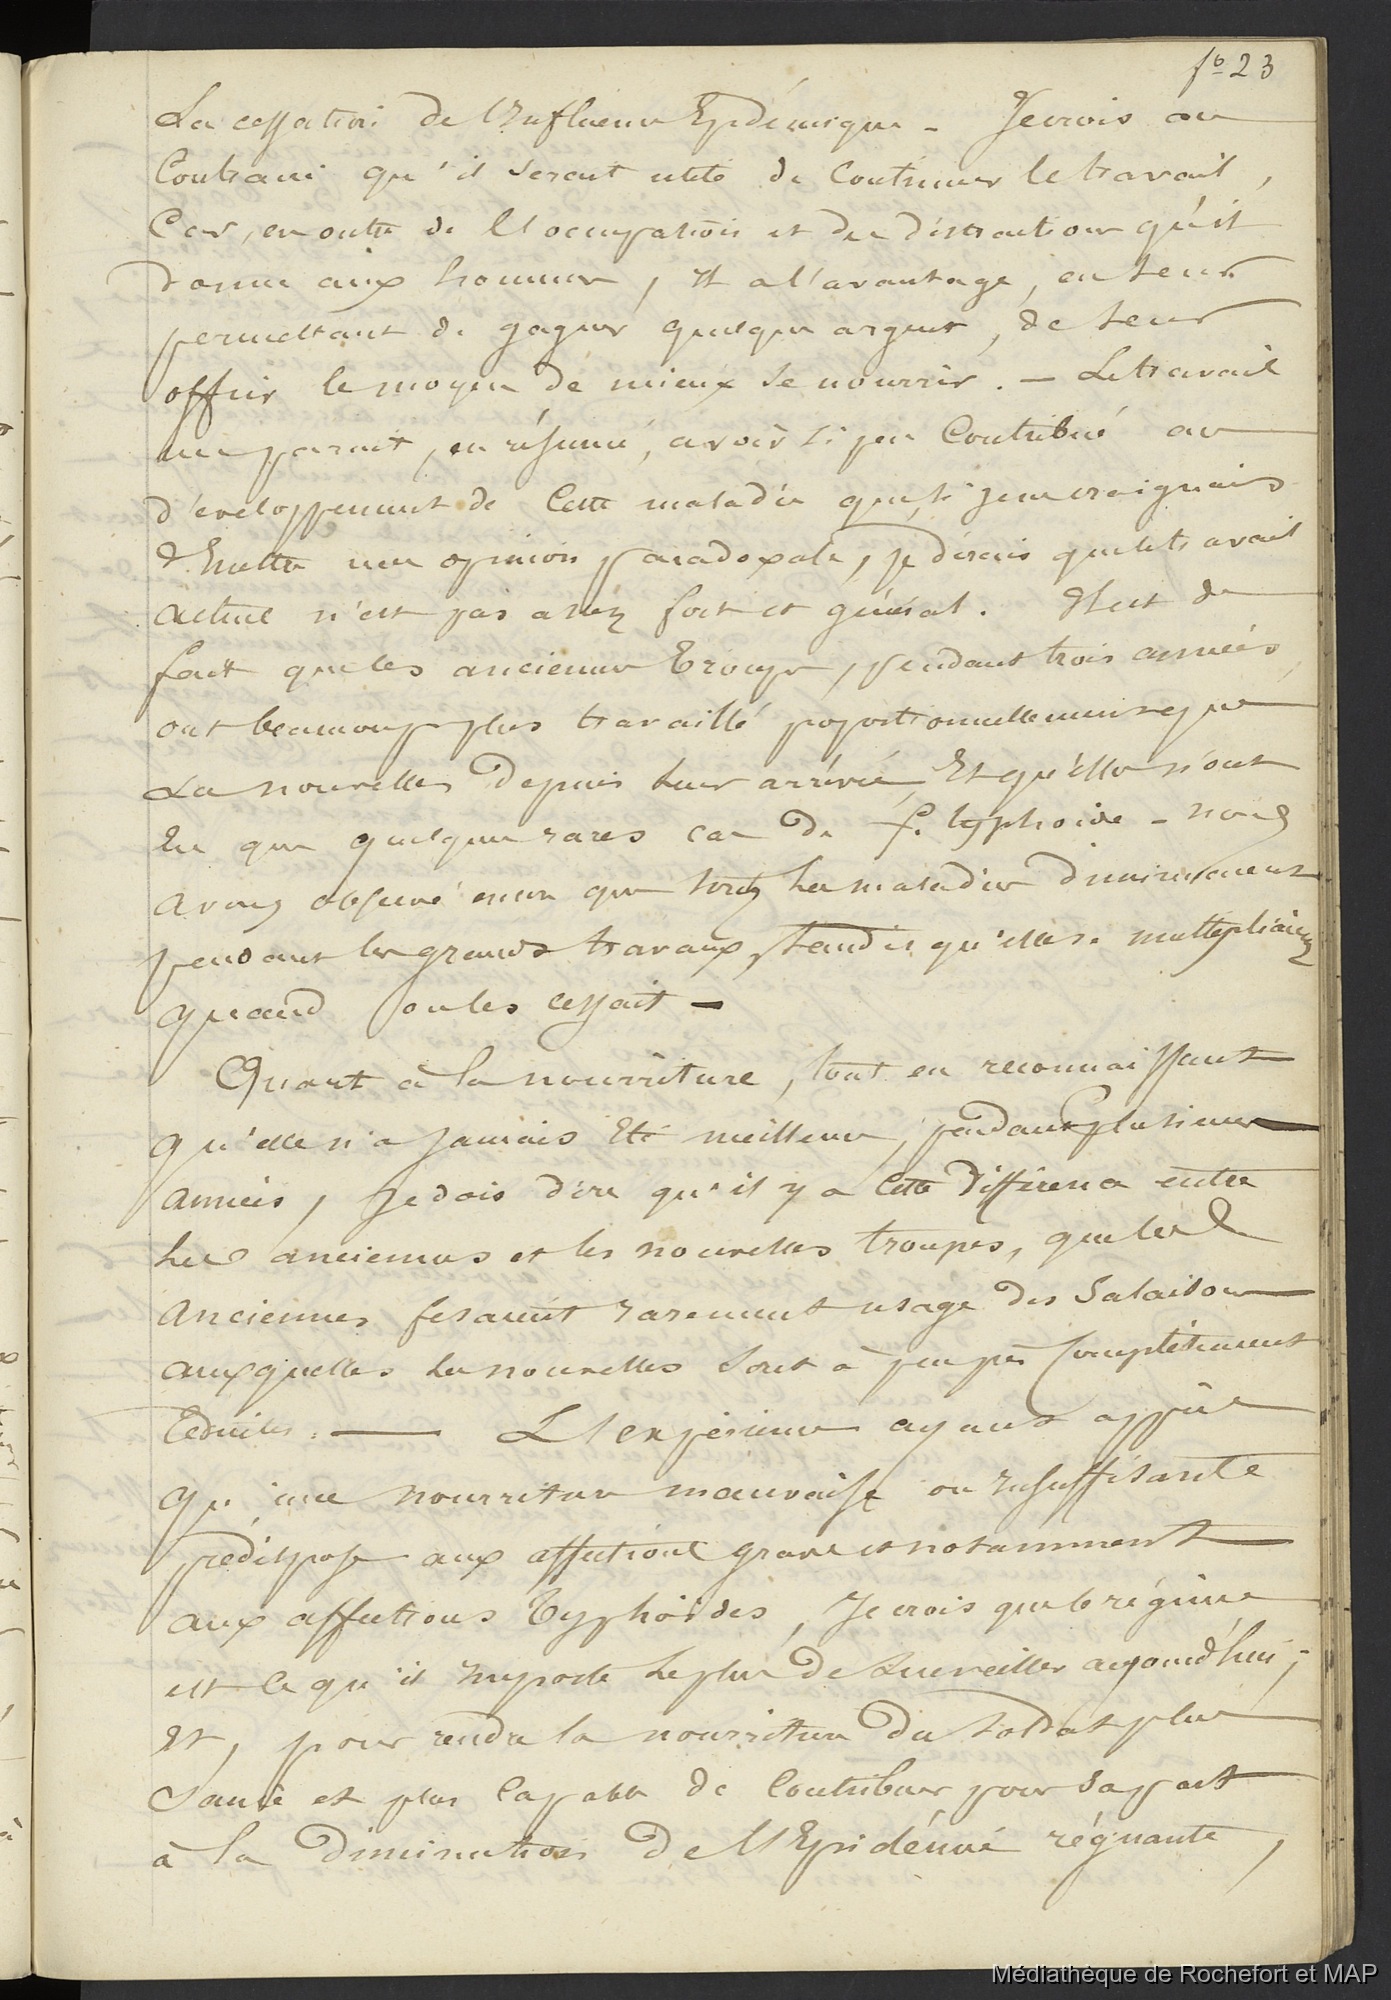 fo 23
La cessation de l'Influence Epidémique - Je crois au
Contraire qu'il serait utile de Continuer le travail,
Car, en outre de l'occupation et des distractions qu'il
donne aux hommes, Il a l'avantage, en leur
permettant de gagner quelque argent, de leur
offrir le moyen de mieux se nourrir. - Le travail
me parait, en résumé, avoir si peu Contribué au
développement de Cette maladie que, si je ne craignais
d'Emettre une opinion paradoxale, je dirais que le travail
actuel n'est pas assez fort et général. Il est de
fait que les anciennes troupes, pendant trois années,
ont beaucoup plus travaillé propostionnellement que
Les nouvelles depuis leur arrivée, Et qu'elles n'ont
Eu que quelques rares cas de f. typhoïde - nous
avons observé encore que toutes Les maladies diminuaient
pendant les grands travaux, tandis qu'elles se multipliaient
quand on les cessait -
Quant à la nourriture, tout en reconnaissant
qu'elle n'a jamais Eté meilleure, pendant plusieurs
années, Je dois dire qu'il y a Cette différence entre
Les anciennes et les nouvelles troupes, que les
anciennes fesaient rarement usage des Salaisons
auxquelles les nouvelles sont à peu près Complètement
réduites. - L'expérience ayant appris
qu'une nourriture mauvaise ou Insuffisante
prédispose aux affections graves et notamment
aux affections typhoïdes, Je crois que le régime
est ce qu'il Importe le plus de surveiller aujourd'hui;
Et, pour rendre la nourriture du soldat plus
saine et plus Capable de Contribuer pour sa part
à la diminution de l'Epidémie régnante,
Médiathèque de Rochefort et MAP